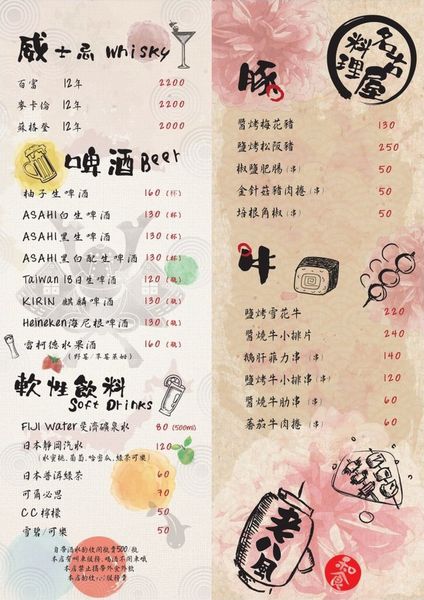 威士忌 Whisky
百富 12年 2200
麥卡倫 12年 2200
蘇格登 12年 2000
啤酒 Beer
柚子生啤酒 160 (杯)
ASAHI白生啤酒 130 (杯)
ASAHI黑生啤酒 130 (杯)
ASAHI黑白配生啤酒 130 (杯)
Taiwan 18日生啤酒 120 (瓶)
KIRIN 麒麟啤酒 130 (瓶)
Heineken海尼根啤酒 130 (瓶)
雷柯德水果酒 160 (瓶)
(野莓/草莓萊姆)
軟性飲料
Soft Drinks
FIJI Water斐濟礦泉水 80 (500ml)
日本靜岡汽水 120
(水蜜桃、葡萄、哈密瓜、綠茶可樂)
日本普洱綠茶 60
可爾必思 70
CC檸檬 50
雪碧/可樂 50
自帶酒水酌收開瓶費500/瓶
本店禁止攜帶外食外飲
名古屋料理
豚
醬烤梅花豬 130
鹽烤松阪豬 250
椒鹽肥腸(串) 50
金針菇豬肉捲(串) 50
培根角椒(串) 50
牛
鹽烤雪花牛 220
醬燒牛小排片 240
鵝肝菲力串(串) 140
鹽烤牛小排串(串) 120
醬燒牛肋串(串) 60
蕃茄牛肉捲(串) 60
老八風
和食